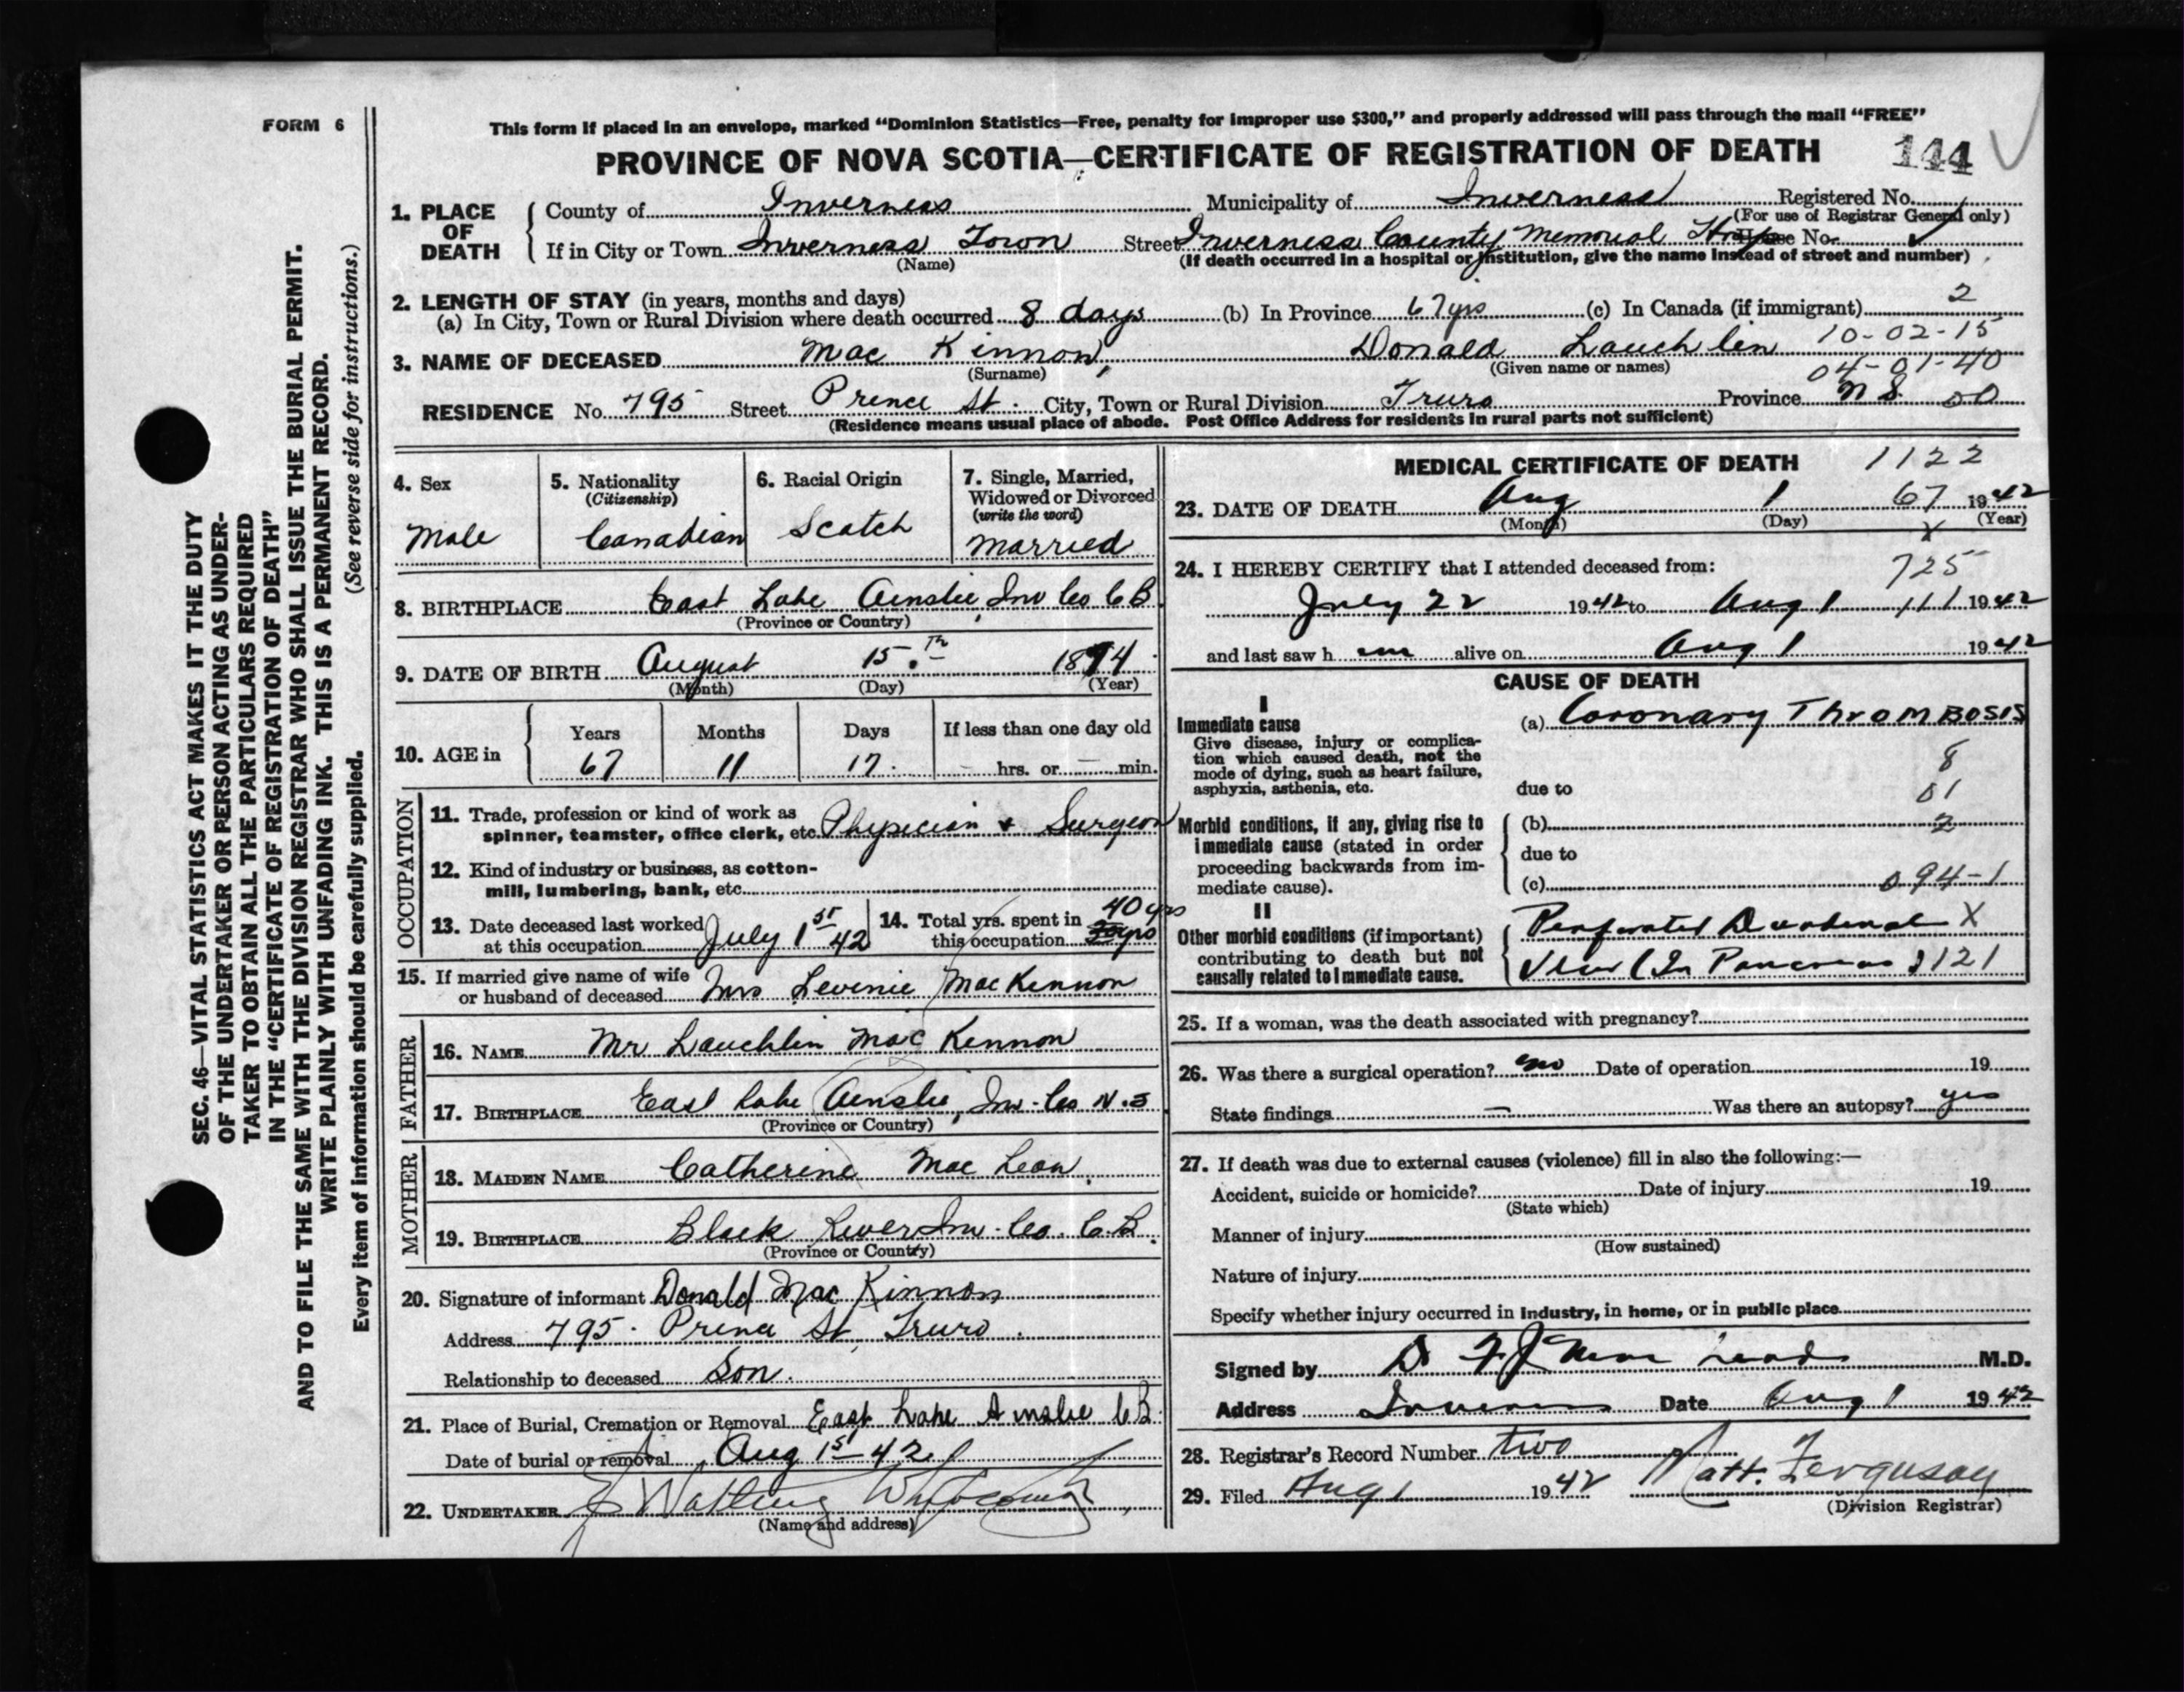 FORM 6
This form if placed in an envelope, marked “Dominion Statistics—Free, penalty for improper use $300,” and properly addressed will pass through the mail “FREE”
PROVINCE OF NOVA SCOTIA—CERTIFICATE OF REGISTRATION OF DEATH 144
1. PLACE OF DEATH
County of Inverness Municipality of Inverness Registered No.
(For use of Registrar General only)
If in City or Town Inverness Town Street Inverness County Memorial Hosp House No.
(Name) (If death occurred in a hospital or institution, give the name instead of street and number)
2. LENGTH OF STAY (in years, months and days)
(a) In City, Town or Rural Division where death occurred 8 days (b) In Province 67 yrs (c) In Canada (if immigrant) 2
10-02-15
3. NAME OF DECEASED Mac Kinnon, Donald Lauchlin
(Surname) (Given name or names) 04-01-40
RESIDENCE No. 795 Street Prince St. City, Town or Rural Division Truro Province N S 00
(Residence means usual place of abode. Post Office Address for residents in rural parts not sufficient)
4. Sex
Male
5. Nationality
(Citizenship)
Canadian
6. Racial Origin
Scotch
7. Single, Married,
Widowed or Divorced
(write the word)
Married
8. BIRTHPLACE East Lake Ainslie, Inv Co C B.
(Province or Country)
9. DATE OF BIRTH August 15th 1874
(Month) (Day) (Year)
10. AGE in
Years Months Days If less than one day old
67 11 17 hrs. or min.
OCCUPATION
11. Trade, profession or kind of work as
spinner, teamster, office clerk, etc. Physician + Surgeon
12. Kind of industry or business, as cotton-
mill, lumbering, bank, etc.
13. Date deceased last worked
at this occupation July 1st 42
14. Total yrs. spent in 40 yrs
this occupation
15. If married give name of wife
or husband of deceased Mrs Levinie MacKinnon
FATHER
16. NAME Mr Lauchlin Mac Kinnon
17. BIRTHPLACE East Lake Ainslie, Inv. Co N.S
(Province or Country)
MOTHER
18. MAIDEN NAME Catherine Mac Lean
19. BIRTHPLACE Black River Inv. Co. C.B.
(Province or Country)
20. Signature of informant Donald Mac Kinnon
Address 795. Prince St, Truro.
Relationship to deceased Son.
21. Place of Burial, Cremation or Removal East Lake Ainslie C B.
Date of burial or removal Aug 1st 42
22. UNDERTAKER
(Name and address)
MEDICAL CERTIFICATE OF DEATH 1122
23. DATE OF DEATH Aug 1 67 1942
(Month) (Day) (Year)
X
24. I HEREBY CERTIFY that I attended deceased from: 725
July 22 1942 to Aug 1 111 1942
and last saw h im alive on Aug 1 1942
CAUSE OF DEATH
I
Immediate cause
Give disease, injury or complica-
tion which caused death, not the
mode of dying, such as heart failure,
asphyxia, asthenia, etc.
(a) Coronary Thrombosis
8
due to 01
Morbid conditions, if any, giving rise to
immediate cause (stated in order
proceeding backwards from im-
mediate cause).
(b) 2
due to
(c) 094-1
II
Other morbid conditions (if important)
contributing to death but not
causally related to immediate cause.
Perforated Duodenal X
Ulcer (In Pancreas) 121
25. If a woman, was the death associated with pregnancy?
26. Was there a surgical operation? no Date of operation 19
State findings — Was there an autopsy? yes
27. If death was due to external causes (violence) fill in also the following:—
Accident, suicide or homicide? Date of injury 19
(State which)
Manner of injury
(How sustained)
Nature of injury
Specify whether injury occurred in industry, in home, or in public place
Signed by M.D.
Address Inverness Date Aug 1 1942
28. Registrar's Record Number two
29. Filed Aug 1 1942 Matt. Ferguson
(Division Registrar)
SEC. 46—VITAL STATISTICS ACT MAKES IT THE DUTY
OF THE UNDERTAKER OR PERSON ACTING AS UNDER-
TAKER TO OBTAIN ALL THE PARTICULARS REQUIRED
IN THE “CERTIFICATE OF REGISTRATION OF DEATH”
AND TO FILE THE SAME WITH THE DIVISION REGISTRAR WHO SHALL ISSUE THE BURIAL PERMIT.
WRITE PLAINLY WITH UNFADING INK. THIS IS A PERMANENT RECORD.
(See reverse side for instructions.)
Every item of information should be carefully supplied.